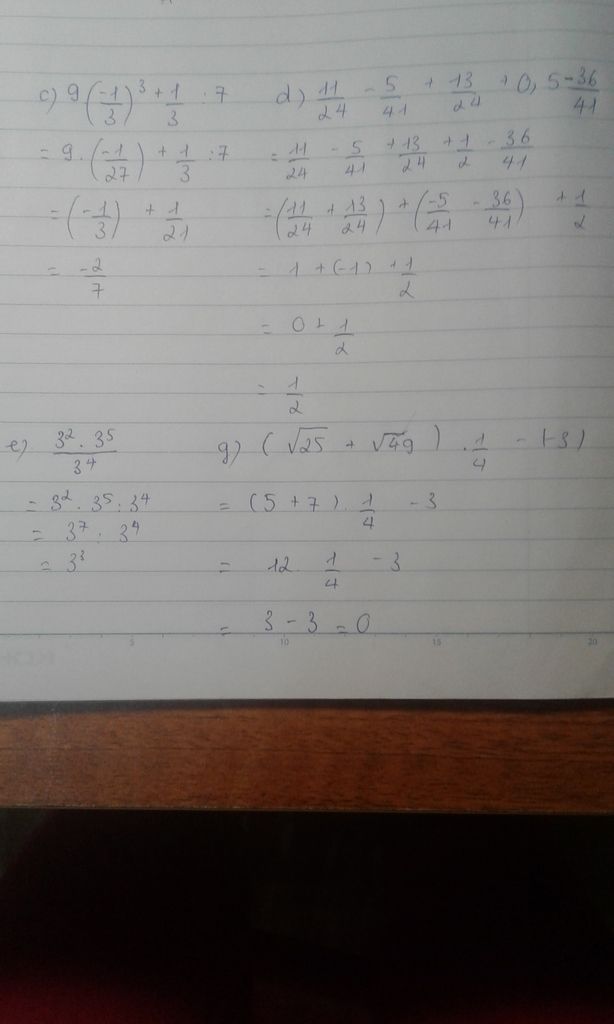 c) 9 (-1/3)^3 + 1/3 : 7
= 9 . (-1/27) + 1/3 : 7
= (-1/3) + 1/21
= -2/7
d) 11/24 - 5/41 + 13/24 + 0,5 - 36/41
= 11/24 - 5/41 + 13/24 + 1/2 - 36/41
= (11/24 + 13/24) + (-5/41 - 36/41) + 1/2
= 1 + (-1) + 1/2
= 0 + 1/2
= 1/2
e) 3^2 . 3^5 / 3^4
= 3^2 . 3^5 : 3^4
= 3^7 : 3^4
= 3^3
g) (√25 + √49) . 1/4 - |-3|
= (5 + 7) . 1/4 - 3
= 12 . 1/4 - 3
= 3 - 3 = 0
5 10 15 20